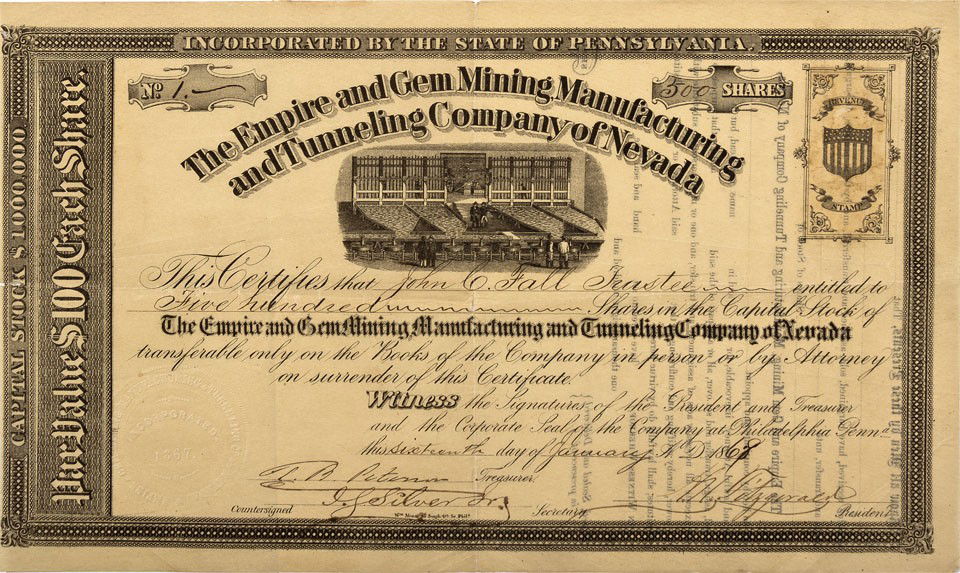 INCORPORATED BY THE STATE OF PENNSYLVANIA.
CAPITAL STOCK $ 1000 000
Par Value $100 Each Share
No 1.
500 SHARES
The Empire and Gem Mining, Manufacturing
and Tunneling Company of Nevada
REVENUE
STAMP
This Certifies that John C. Fall Trustee entitled to
Five hundred Shares in the Capital Stock of
The Empire and Gem Mining, Manufacturing and Tunneling Company of Nevada
transferable only on the Books of the Company in person or by Attorney
on surrender of this Certificate.
Witness the Signatures of the President and Treasurer
and the Corporate Seal of the Company at Philadelphia Penna
this sixteenth day of January A.D. 1868
INCORPORATED
1867
Treasurer.
Countersigned
Secretary
President